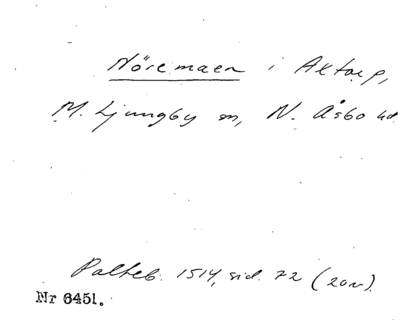 Nöremaen i Axtorp,
M. Ljungby sn, N. Åsbo hd.
Palteb. 1514, sid. 72 (20v).
Nr 6451.